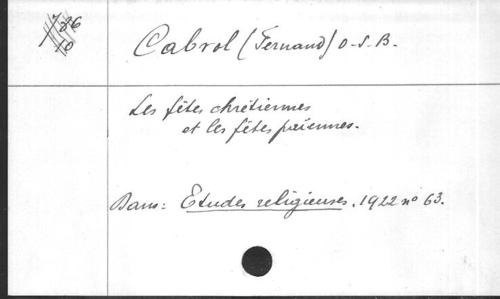 Cabrol (Fernand) O.S.B.
Les fêtes chrétiennes
et les fêtes païennes.
Dans: Etudes religieuses, 1922 nº 63.